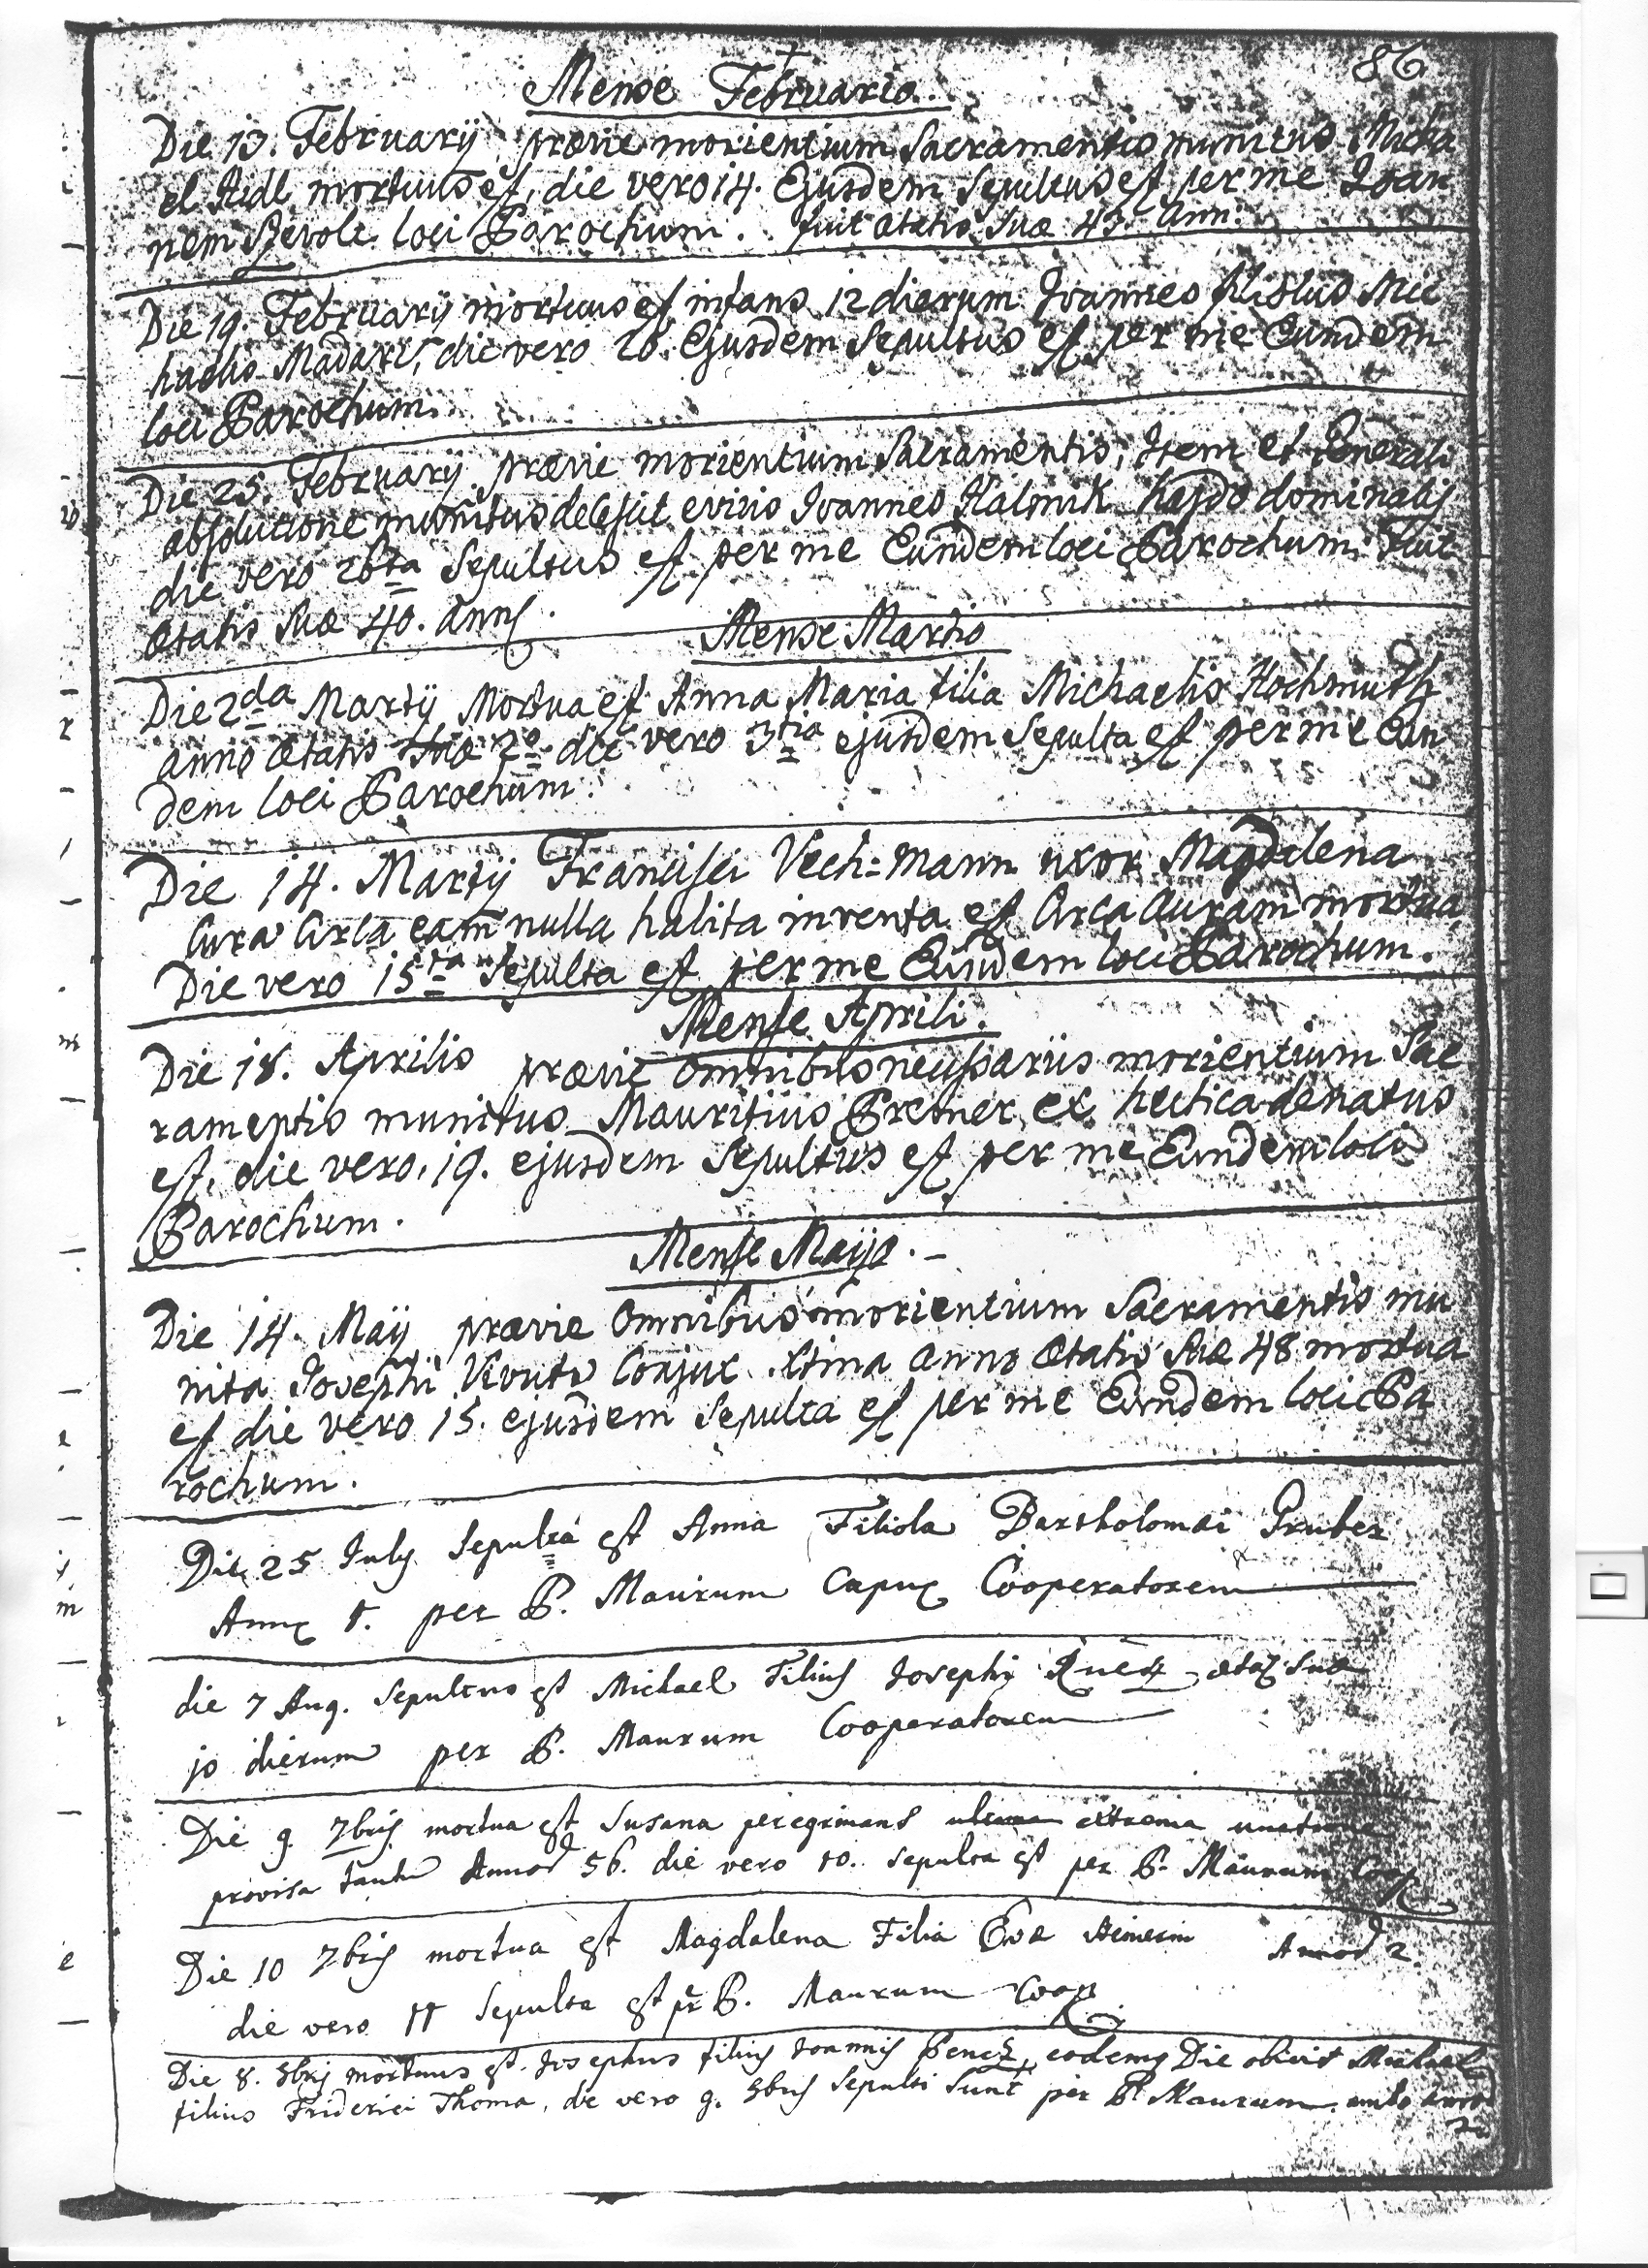 86
Mense Februario.
Die 13. Februarij prævie morientium Sacramentis munitus Micha
el Aidl mortuus est, die vero 14. Ejusdem Sepultus est per me Joan
nem loci Parochum. fuit ætatis suæ 43. Ann:
Die 19. Februarij mortuus est infans 12 dierum Joannes filiolus Mic
haelis Madari, die vero 20. Ejusdem Sepultus est per me Eundem
loci Parochum.
Die 25. Februarij prævie morientium Sacramentis, Item et Generali
absolutione munitus decessit e vivis Joannes Kalmik hajdo dominalis
die vero 26ta Sepultus est per me Eundem loci Parochum. Fuit
ætatis suæ 40. Annj.
Mense Martio
Die 2da Martij Mortua est Anna Maria filia Michaelis Hochmuth
anno ætatis suæ 2o die vero 3tia ejusdem Sepulta est per me Eun
dem loci Parochum.
Die 14. Martij Francisci Vech=mann uxor Magdalena
Cura Circa eam nulla habita inventa est Circa Auram mortua
Die vero 15ta Sepulta est per me Eundem loci Parochum.
Mense Aprili.
Die 18. Aprilis prævie omnibus necessariis morientium Sac
ramentis munitus Mauritius Pretner ex hectica denatus
est, die vero 19. ejusdem Sepultus est per me Eundem loci
Parochum.
Mense Majo.
Die 14. Maij prævie omnibus morientium Sacramentis mu
nita Josephi Conjux anno ætatis suæ 48 mortua
est die vero 15. ejusdem Sepulta est per me Eundem loci Pa
rochum.
Die 25 July Sepulta est Anna Filiola Bartholomæi Gruber
per P. Maurum Capuc Cooperatorem
die 7 Aug. Sepultus est Michael Filius Josephi suæ
10 dierum per P. Maurum Cooperatorem
Die 9 7bris mortua est Susana peregrinans extrema unctione
provisa 56. die vero 10. Sepulta est per P. Maurum Coop
Die 10 7bris mortua est Magdalena Filia Evæ 2.
die vero 11 Sepulta est pr P. Maurum Coop
Die 8. mortuus est Josephus filius Joannis eodem Die obiit Michael
filius Friderici Thoma, die vero 9. Sepulti Sunt per P. Maurum. ambo